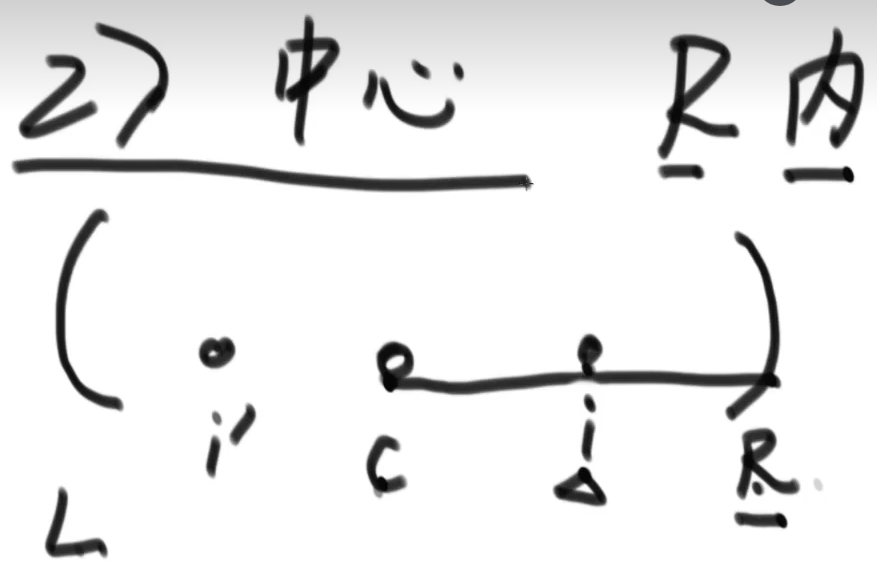 2) 中心 R 内
( i' C i R )
L